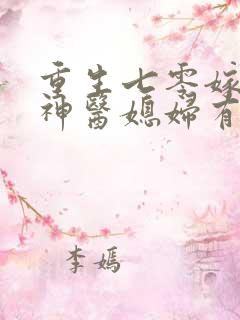 重生七零嫁
神醫媳婦有
李嫣